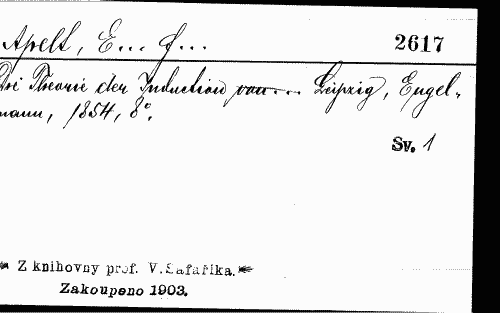 Apelt, E... F...
2617
Die Theorie der Induction von... Leipzig, Engel-
mann, 1854, 8°.
Sv. 1
Z knihovny prof. V. Šafaříka.
Zakoupeno 1903.